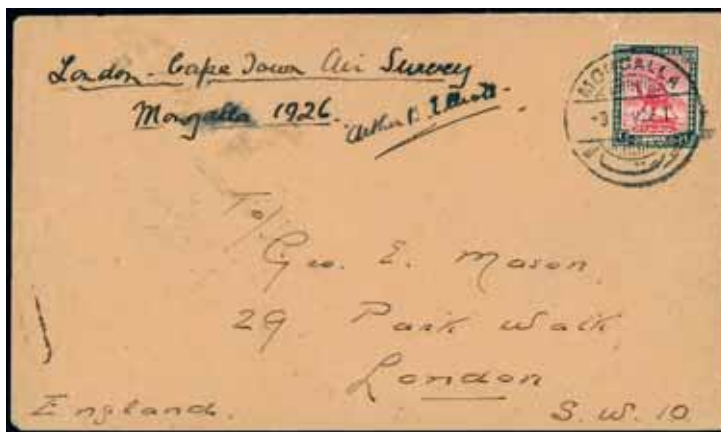 London - Cape Town Air Survey
Mongalla 1926.
Arthur B. Elliott
MONGALLA
To/
Geo. E. Mason
29 Park Walk
London
England.
S.W.10